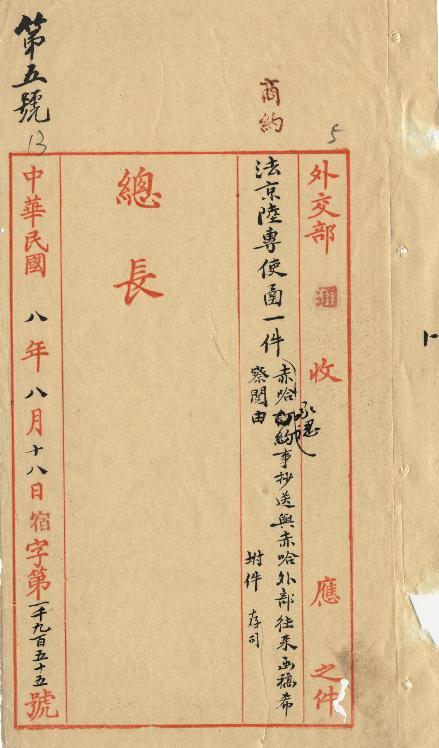 商約
5
外交部 通 收 應 之件
法京陸專使函一件 赤哈約事抄送與赤哈外部往來函稿希
承認
察閱由
附件 存司
總長
中華民國八年八月十八日宿字第一千九百五十五號
第五號
13